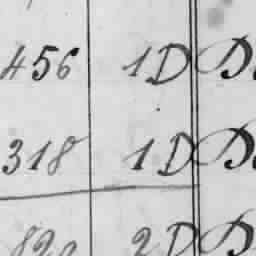 456 1D D
318 1D D
820 2D D